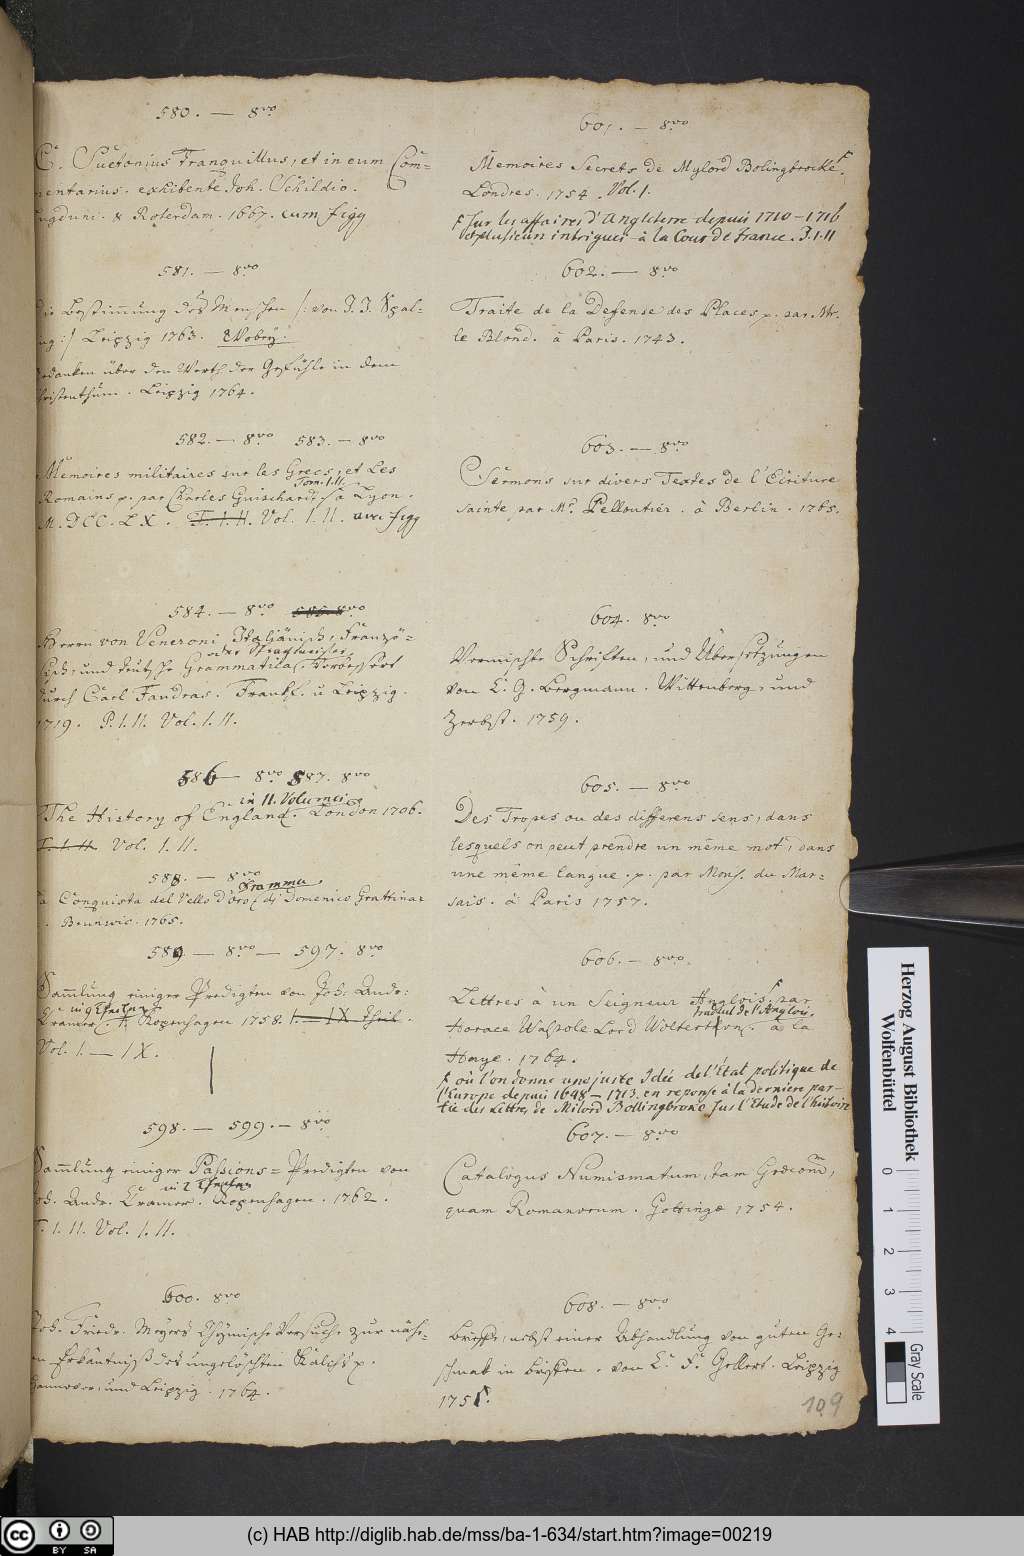 580. — 8vo
C. Suetonius Tranquillus, et in eum Com=
mentarius. exhibente Joh. Schildio.
Lugduni. & Roterdam. 1667. cum figg
581. — 8vo
die Bestimmung des Menschen /: von J. J. Spal=
ng :/ Leipzig 1763.
Gedanken über den Werth der Gefühle in dem
Christenthum. Leipzig 1764.
582. — 8vo 583. — 8vo
Memoires militaires sur les Grecs, et Les
Tom. I. II.
Romains p. par Charles Guischardt à Lyon.
M. DCC. LX. T. I. II. Vol. I. II. avec figg
584. — 8vo 585. 8vo
Herrn von Veneroni Italiänisch, Franzö=
oder Sprachmeister
sisch, und teutsche Grammatica. Verbessert
durch Carl Faudras. Frankf. u Leipzig.
1719. P. I. II. Vol. I. II.
586 — 8vo 587. 8vo
in II. Volumes
The History of England. London 1706.
T. I. II. Vol. I. II.
588. — 8vo
Dramma
La Conquista del Vello d'oro di Domenico Grattinar
Brunsvic. 1765.
589 — 8vo — 597. 8vo
Sammlung einiger Predigten von Joh: Andr:
in 9 Theilen
Cramer. Kopenhagen 1758. I. — IX Theil.
Vol. I. — IX.
598. — 599. — 8vo
Sammlung einiger Passions=Predigten von
in 2 Theilen
Joh. Andr. Cramer. Kopenhagen. 1762.
T. I. II. Vol. I. II.
600. 8vo
Joh. Friedr. Meyers Chymische Versuche zur näh=
ern Erkäntniß des ungelöschten Kalchs p.
Hannover, und Leipzig. 1764.
601. — 8vo
Memoires Secrets de Mylord Bolingbrocke.
Londres. 1754. Vol. I.
sur les affaires d'Angleterre depuis 1710 — 1716
et plusieurs intrigues à la Cour de France. P. I. II
602. — 8vo
Traite de la Defense des Places p. par Mr.
le Blond. à Paris. 1743.
603. — 8vo
Sermons sur divers Textes de l'Ecriture
sainte par Mr. Pelloutier. à Berlin. 1765.
604. 8vo
Vermischte Schriften, und Übersetzungen
von C. G. Bergmann. Wittenberg, und
Zerbst. 1759.
605. — 8vo
Des Tropes ou des differens sens, dans
lesquels on peut prendre un même mot, dans
une même langue. p. par Mons. du Mar=
sais. à Paris 1757.
606. — 8vo.
Lettres à un Seigneur Anglois, par
traduit de l'Anglois
Horace Walpole Lord Wolterthon. à la
Haye. 1764.
où l'on donne une juste Idée de l'Etat politique de
l'Europe depuis 1648 — 1713. en reponse à la derniere par-
tie des Lettres de Milord Bollingbroke sur l'Etude de l'histoire
607. — 8vo
Catalogus Numismatum, tam Græcorum,
quam Romanorum. Gottingæ 1754.
608. — 8vo
Briefe, nebst einer Abhandlung von guten Ge=
schmak in Briefen. von C. F. Gellert. Leipzig
1751.
109
Herzog August Bibliothek
Wolfenbüttel
0 1 2 3 4
Gray Scale
cc BY SA
(c) HAB http://diglib.hab.de/mss/ba-1-634/start.htm?image=00219